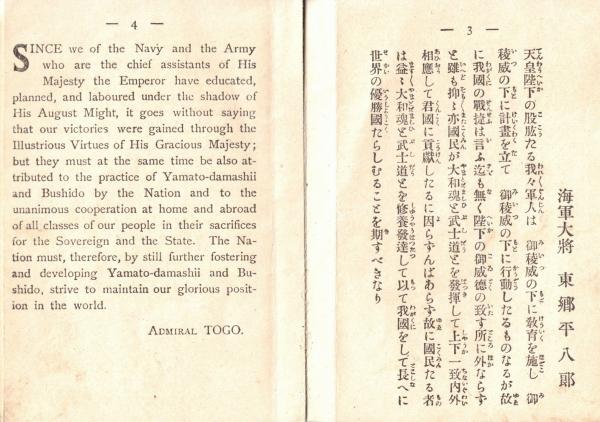 — 4 —
SINCE we of the Navy and the Army
who are the chief assistants of His
Majesty the Emperor have educated,
planned, and laboured under the shadow of
His August Might, it goes without saying
that our victories were gained through the
Illustrious Virtues of His Gracious Majesty;
but they must at the same time be also at-
tributed to the practice of Yamato-damashii
and Bushido by the Nation and to the
unanimous cooperation at home and abroad
of all classes of our people in their sacrifices
for the Sovereign and the State. The Na-
tion must, therefore, by still further fostering
and developing Yamato-damashii and Bu-
shido, strive to maintain our glorious posit-
ion in the world.
ADMIRAL TOGO.
— 3 —
海軍大將 東鄕平八郞
天皇陛下の股肱たる我々軍人は 御稜威の下に敎育を施し 御
稜威の下に計畫を立て 御稜威の下に行動したるものなるが故
に我國の戰捷は言ふ迄も無く陛下の御威德の致す所に外ならず
と雖も抑〻亦國民が大和魂と武士道とを發揮して上下一致內外
相應して君國に貢獻したるに因らずんばあらず故に國民たる者
は益〻大和魂と武士道とを修養發達して以て我國をして長へに
世界の優勝國たらしむることを期すべきなり